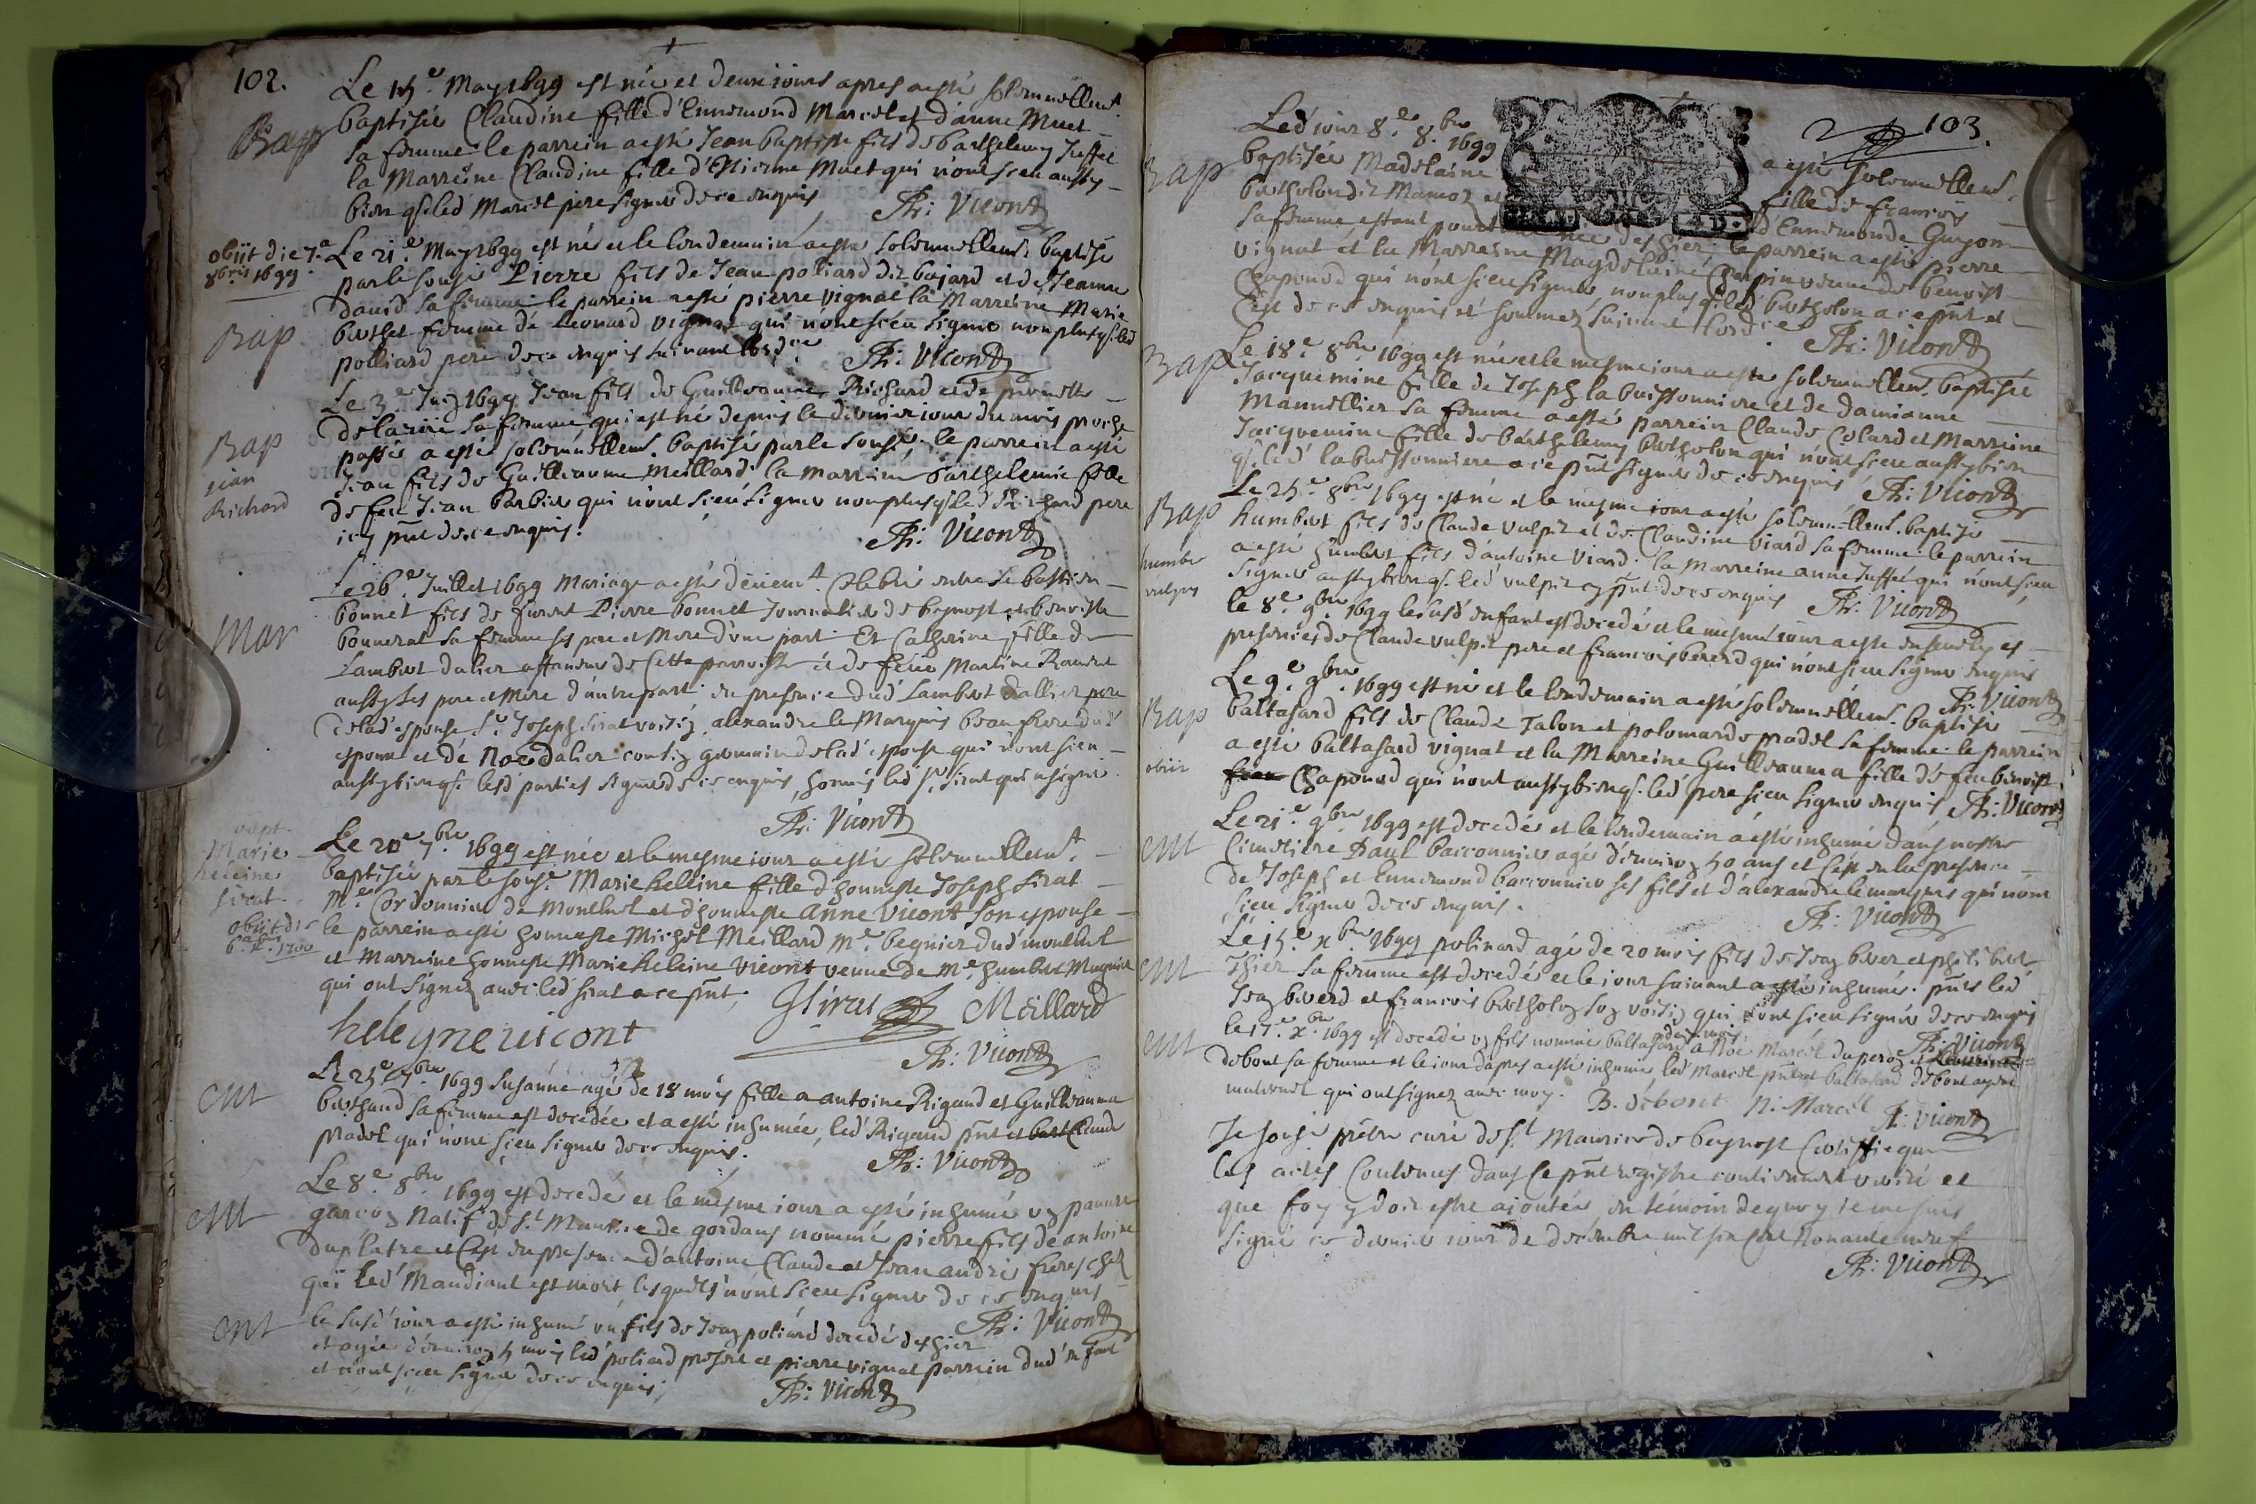 102.
Le 15.e May 1699 est née et deux jours apres a esté solemnellemt.
Bap
baptisée Claudine fille d'Ennemond Marcel et d'anne Muet
sa femme le parrein a esté Jean baptiste fils de barthelemy Juffet
la Marreine Claudine fille d'Estienne Muet qui n'ont sceu aussy
bien q. led Marcel pere signer de ce enquis Ph: Vicont
obiit die 7.a
8bris 1699.
Le 21.e May 1699 est né et le lendemain a esté solemnellemt. baptisé
par le sousé Pierre fils de Jean poliard dit bajard et de Jeanne
Bap
David sa femme le parrein a esté pierre vignat la Marreine Marie
berthet femme de Leonard vignat qui n'ont sceu signer non plus q. led
polliard pere de ce enquis suivant l'ordce Ph: Vicont
Le 3.e Juin 1699 Jean fils de Guilleaume Richard et de pernette
Bap
jean
Richard
delarue sa femme qui est né depuis le dernier jour du mois proche
passé a esté solemnellemt. baptisé par le sousé, le parrein a esté
Jean fils de Guilleaume Meillard la marreine barthelemie fille
de feu Jean barbier qui n'ont sceu signer non plus q. led Richard pere
icy pnt de ce enquis. Ph: Vicont
Le 26.e Juillet 1699 Mariage a esté deuemt. Celebré entre Sebastien
bonnet fils de furent Pierre bonnet Journalier de beynost et benoiste
Mar
bonnerat sa femme ses pere et Mere d'une part. Et Catherine fille de
Lambert dalier affaneur de Cette parroisse et de feue Martine
aussy ses pere et Mere d'autre part. en presence dud Lambert dallier pere
de lad espouse, Sr. Joseph sirat voisin, alexandre le Marquis beau frere dud
espoux et de Noe dalier cousin germain de lad espouse qui n'ont sceu
aussy bien q. lesd parties signer de ce enquis, hormis led Sr. Sirat qui a signé.
Ph: Vicont
bapt.
Marie
heleine
sirat
obiit die
1700
Le 20.e 7.bre 1699 est née et le mesme jour a esté solemnellemt.
baptisée par le sousé. Marie heleine fille d'honneste Joseph sirat
Me. Cordonnier de Montluel et d'honneste Anne Vicont son espouse
le parrein a esté honneste Michel Meillard Me. dud montluel
et Marreine honneste Marie heleine Vicont veuve de Me. humbert
qui ont signez avec led sirat a ce pnt, JSirat Meillard
heleyne vicont Ph: Vicont
ent
Le 25.e 7.bre 1699 Susanne agé de 18 mois fille a antoine Rigaud et Guilleauma
berthaud sa femme est decedée et a esté inhumée, led Rigaud pnt et Claude
pradel qui n'ont sceu signer de ce enquis. Ph: Vicont
Le 8.e 8.bre 1699 est decedé et le mesme jour a esté inhumé un pauvre
ent
garçon Natif de St Maurice de gordans nommé pierre fils de antoine
duplatre et C'est en presence d'antoine Claude et Jean andré freres chez
qui led Mandiant est mort lesquels n'ont sceu signer de ce enquis
Ph: Vicont
ent
le susd jour a esté inhumé un fils de Jean poliard decedé des hier
et agée d'environ 5 mois led poliard present et pierre vignat parrein dud enfant
et n'ont sceu signer de ce enquis, Ph: Vicont
2 103.
D.
Led jour 8.e 8.bre 1699 a esté solemnellemt.
Bap
baptisée Madelaine fille de francois
bertholon dit Mamoz et d'Ennemonde Guyon
sa femme estant née des hier. le parrein a esté pierre
vignat et la Marreine Magdelaine Crepin veuve de benoist
Chaponod qui n'ont sceu signer non plus q. led bertholon a ce pnt et
C'est de ce enquis et sommez suivant l'ordce. Ph: Vicont
Bap
Le 18.e 8.bre 1699 est née et le mesme jour a esté solemnellemt. baptisée
Jacquemine fille de Joseph la buissonniere et de damianne
Mannellier sa femme a esté parrein Claude Colard et Marreine
Jacquemine fille de barthelemy bertholon qui n'ont sceu aussy bien
q. led labuissonniere a ce pnt signer de ce enquis Ph: Vicont
Bap
humber
vulpis
Le 25.e 8.bre 1699 est né et le mesme jour a esté solemnellemt. baptisé
humbert fils de Claude vulpit et de Claudine viard sa femme. le parrein
a esté humbert fils d'antoine viard. la Marreine anne Juffet qui n'ont sceu
signer aussy bien q. led vulpit cy pnt de ce enquis Ph: Vicont
le 8.e 9.bre 1699 le susd enfant est decedé et le mesme jour a esté ensevely es
presences de Claude vulpit pere et francois bererd qui n'ont sceu signer enquis
Ph: Vicont
Bap
obiit
Le 9.e 9.bre. 1699 est né et le lendemain a esté solemnellemt. baptisé
baltasard fils de Claude Talon et polomarde pradel sa femme. le parrein
a esté baltasard vignat et la Marreine Guilleauma fille de feu benoist
Chaponod qui n'ont aussy bien q. led pere sceu signer enquis, Ph: Vicont
ent
Le 21.e 9.bre 1699 est decedé et le lendemain a esté inhumé dans nostre
Cimetiere Paul barconnier agé d'environ 50 ans et C'est en la presence
de Joseph et Ennemond barconnier ses fils et d'alexandre le marquis qui n'ont
sceu signer de ce enquis. Ph: Vicont
ent
Le 15.e x.bre 1699 polinard agé de 20 mois fils de Jean berer et philiberte
Thier sa femme est decedé et le jour suivant a esté inhumé. pnts led
Jean bererd et francois bertholon son voisin qui n'ont sceu signer de ce enquis
Ph: Vicont
ent
le 17.e x.bre 1699 est decedé un fils nommé baltasard a Noé Marcel du
debout sa femme et le jour d'apres a esté inhumé, led Marcel pnt et baltasard debout ayeul
maternel qui ont signez avec moy. B. debout N. Marcel Ph: Vicont
Je sousé prêtre curé de St. Maurice de beynost Certiffie que
les actes Contenus dans ce pnt registre contiennent verité et
que foy y doit estre ajoutée en témoin de quoy je me suis
signé ce dernier jour de décembre mil six cent Nonante neuf
Ph: Vicont